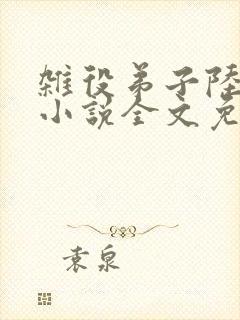 雑役弟子陸
小說全文免
袁泉